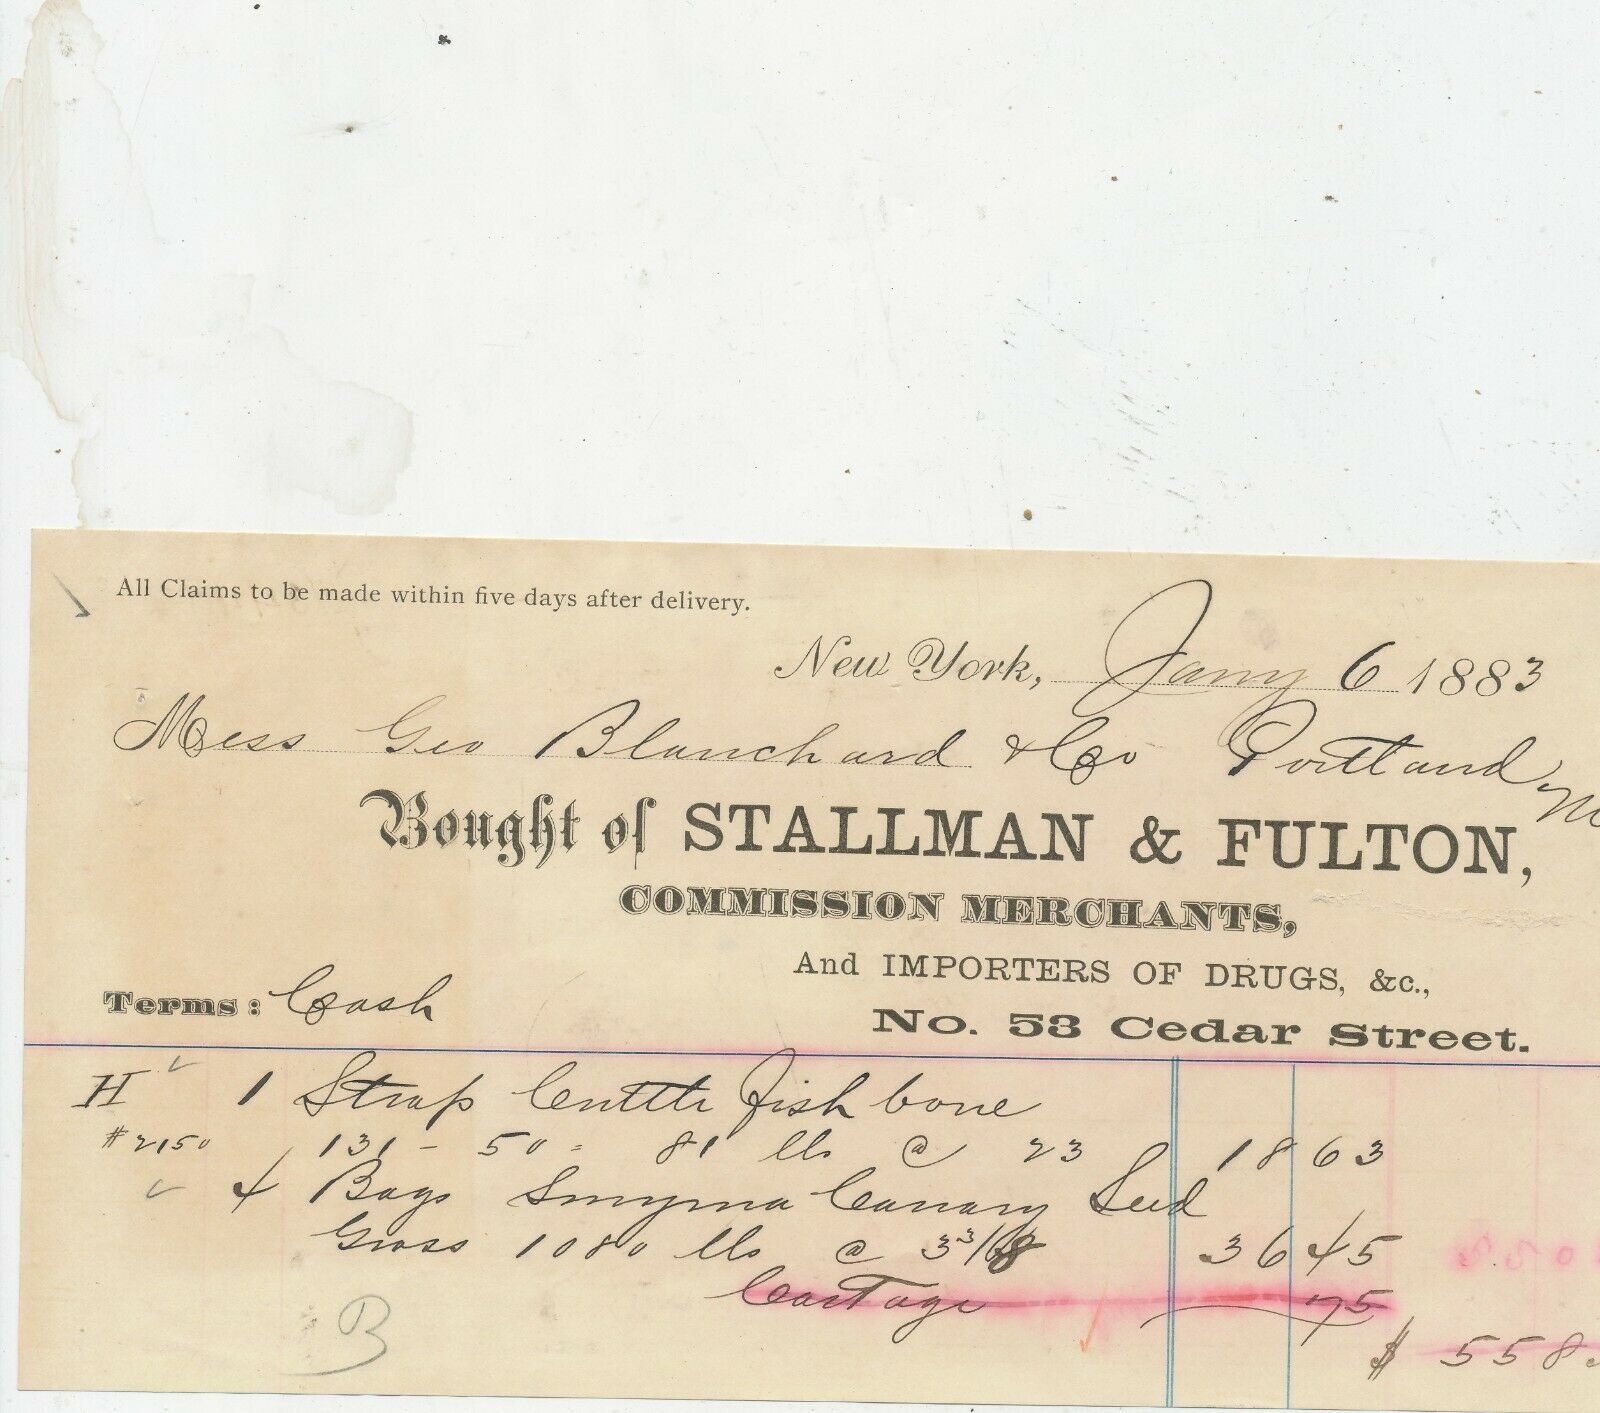 All Claims to be made within five days after delivery.
New York, Jany 6 1883
Mess Geo Blanchard & Co Portland
Bought of STALLMAN & FULTON,
COMMISSION MERCHANTS,
And IMPORTERS OF DRUGS, &c.,
Terms: Cash
No. 53 Cedar Street.
H 1 Strap Cuttle Fish bone
#2150 131 - 50 = 81 lbs @ 23 18 63
4 Bags Smyrna Canary Seed
Gross 1080 lbs @ 3 3/8 36 45
Cartage 75
$ 558
B